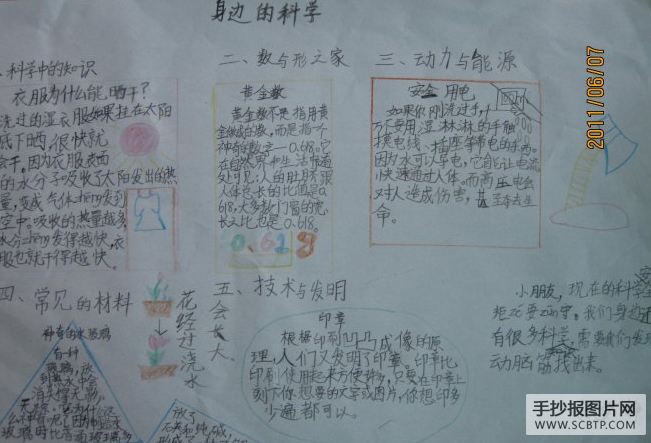 身边的科学
、科学中的知识
衣服为什么能晒干？
洗过的湿衣服如果挂在太阳
底下晒，很快就
会干。因为衣服表面
的水分子吸收了太阳发出的热
量，变成气体zheng发到
空中。吸收的热量越多
水分zheng发得越快，衣
服也就干得越快。
二、数与形之家
黄金数
黄金数不是指用黄
金做的数，而是指一个
神奇的数字—0.618。它
在自然界和生活中随
处可见：人的肚脐跟
人体总长的比也是0.
618，大多数门窗的宽
长之比也是0.618。
0.618
三、动力与能源
安全用电
如果你刚洗过手，千
万不要用湿淋淋的手触
摸电线、插座等带电的东西。
因为水可以导电，它能让电流
快速通过人体。而高压电会
对人造成伤害，甚至夺去生
命。
2011/06/07
四、常见的材料
神奇的水玻璃
有一种
玻璃，放
到水中会
消失得无影
花经过浇水
会长大。
放了
五、技术与发明
印章
根据印刷凹凸成像的原
理，人们又发明了印章。印章比
印刷使用起来方便得多，只要在印章上
刻下你想要的文字或图片，你想印多
少遍都可以。
小朋友，现在的科学
我们身边还
有很多科学，需要我们发
动脑筋找出来。
手抄报图片网
WWW.SCBTP.COM